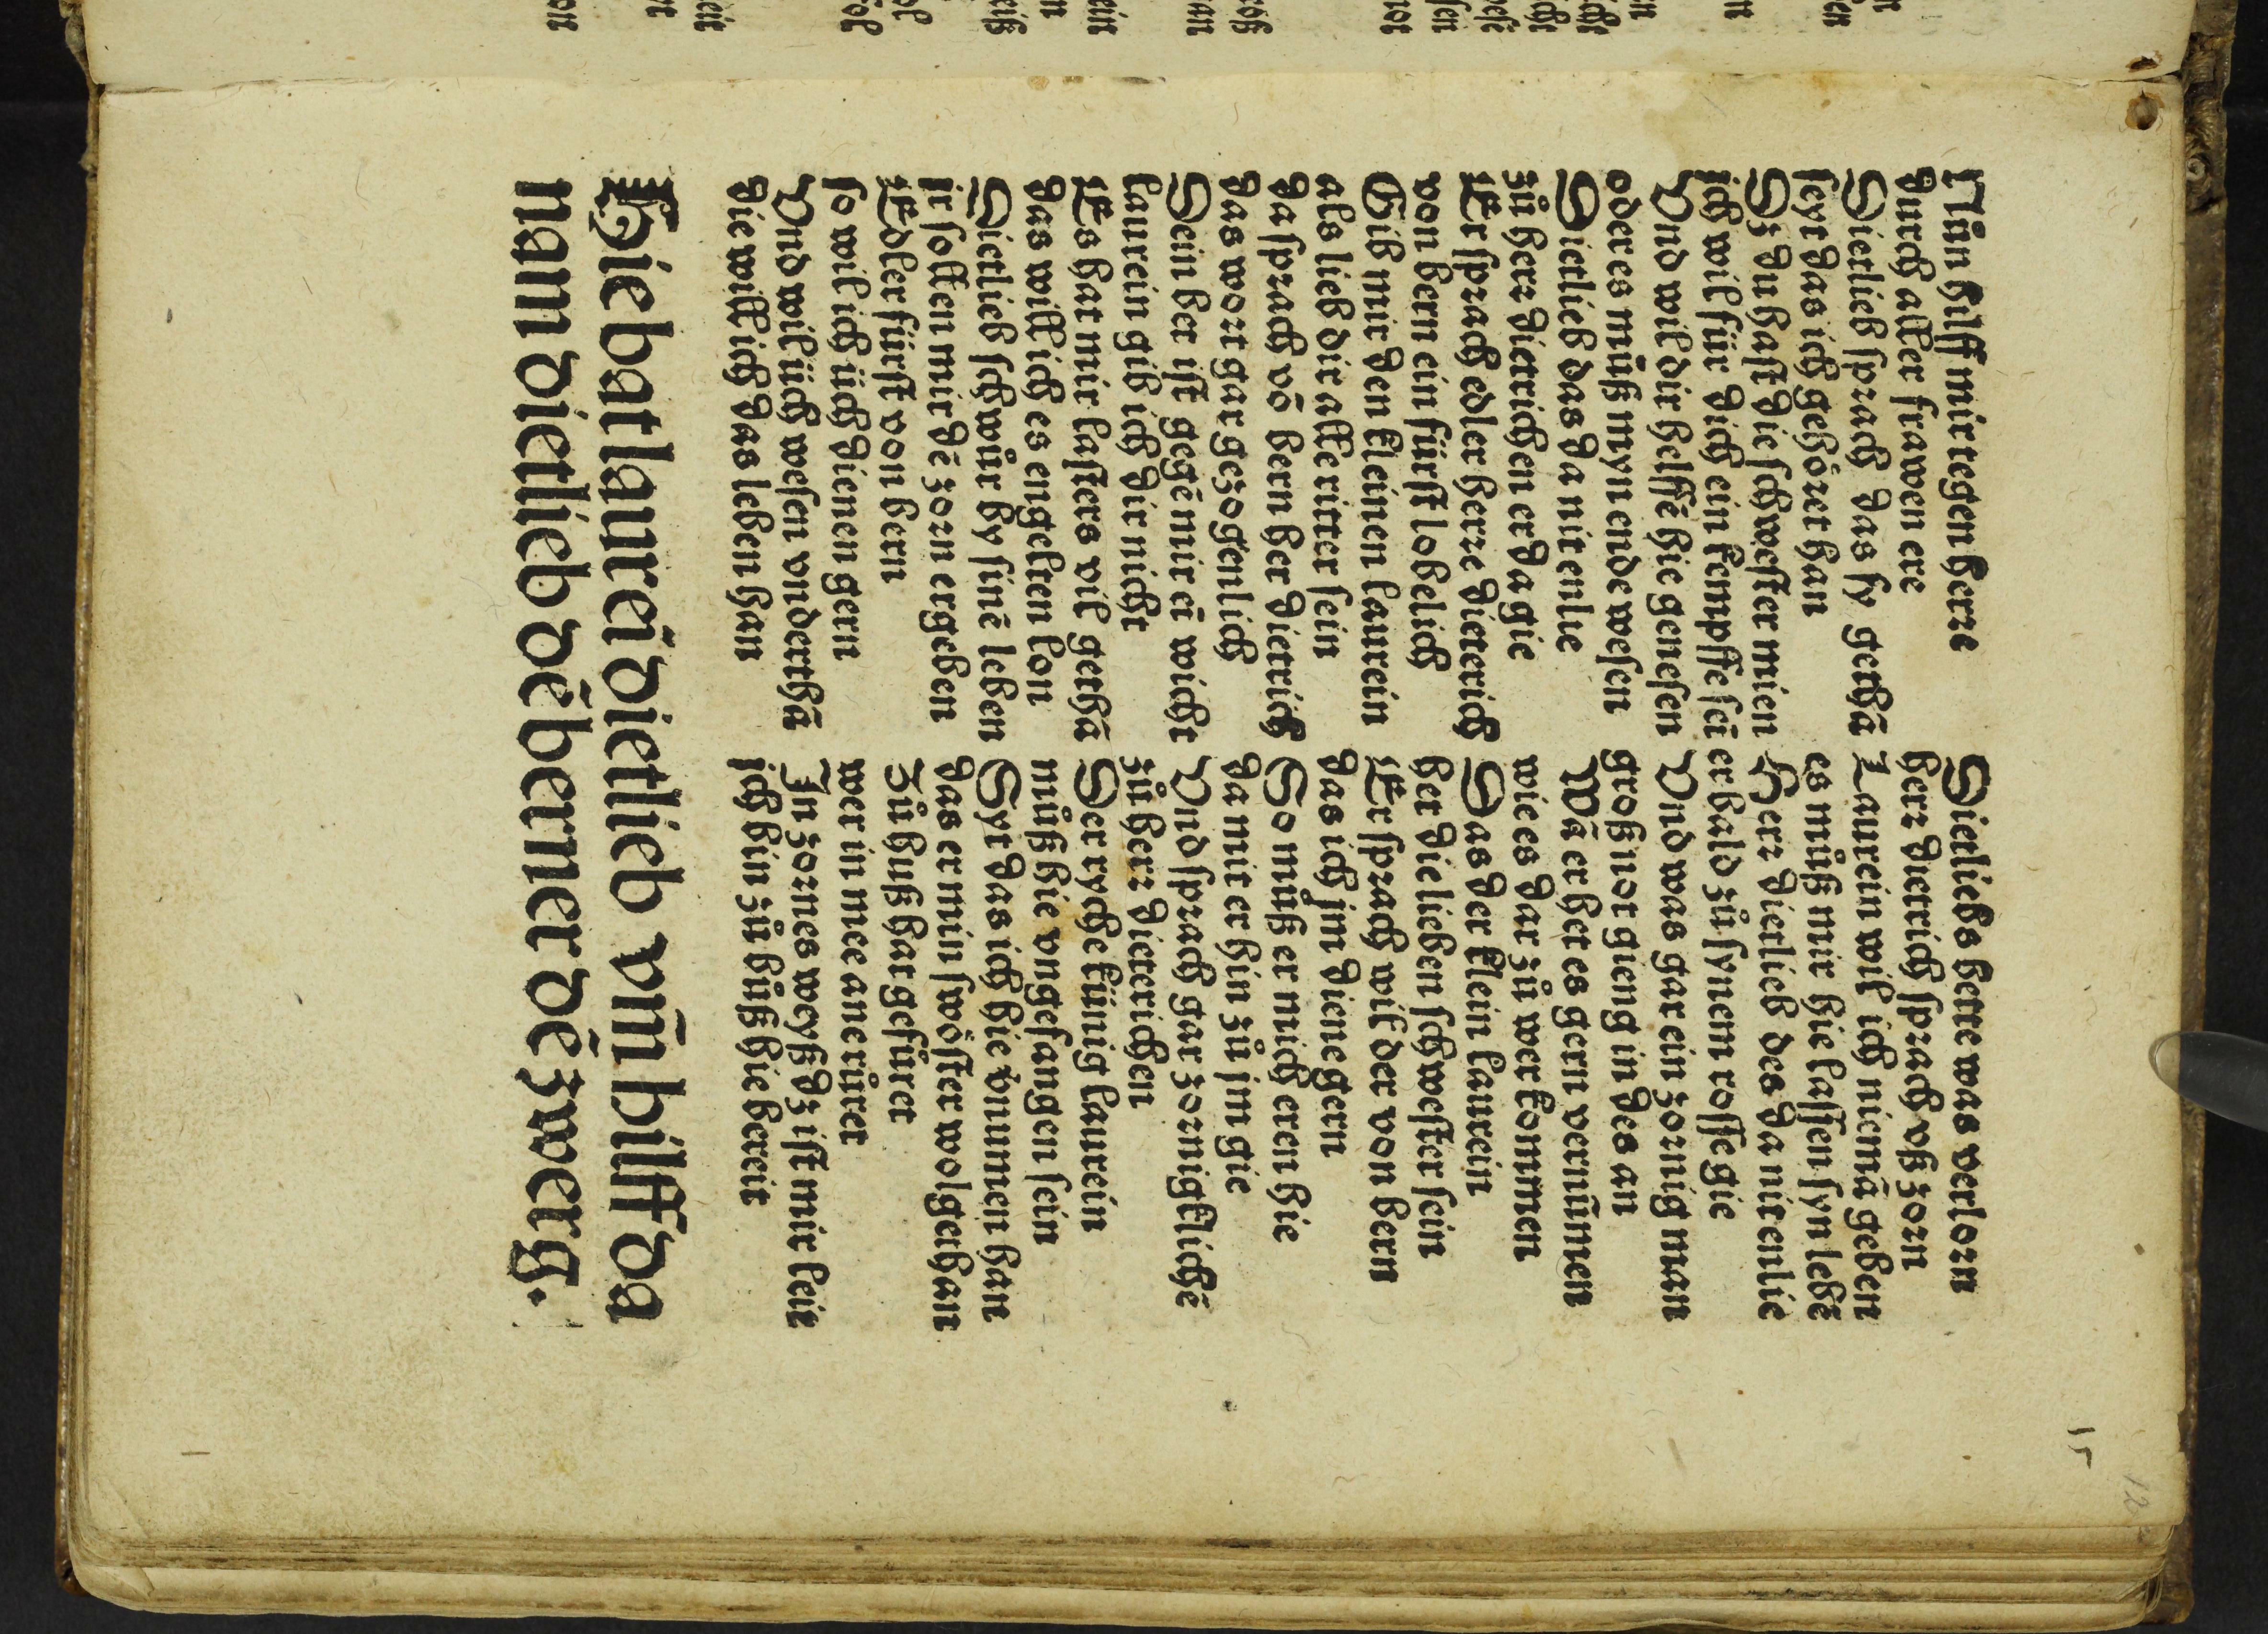 Nůn hilff mir tegen herre
durch aller frawen ere
Dietlieb sprach das sy gethā
seyt das ich gehözet han
Dz du hast die schwester mien
ich wil für dich ein kempffe sei
Vnd wil dir helffē hie genesen
oder es můß myn ende wesen
Dietlieb das da nit enlie
zů herz dietrichen er da gie
Er sprach edler herre dieterich
von bern ein fürst lobelich
Gib mir den kleinen laurein
als lieb dir alle ritter sein
Da sprach vō bern her dietrich
das wozt gar gezogenlich
Dein her ist gegē mir eī wicht
laurein gib ich dir nicht
Es hat mir lasters vil gethā
das will ich es engelten lon
Dietlieb schwůr by sinē leben
ir sollen mir dē zozn ergeben
Edler fürst von bern
so wil ich üch dienen gern
Vnd wil üch wesen vndertha̅
die will ich das leben han
Hie bat laureī dietlieb vm̄ hilff da
nam dietlieb dē berner dē zwerg.
Dietliebs bette was verlozn
herz dietrich sprach vß zozn
Laurein wil ich niemā geben
es můß mir hie lassen syn lebē
Herz dietlieb des da nit enlie
er bald zů synem rosse gie
Vnd was gar ein zoznig man
groß not gieng in des an
Wā er het es gern vernūmen
wie es dar zů wer kommen
Das der klein laurein
het die lieben schwester sein
Er sprach wil der von bern
das ich jm diene gern
So můß er mich eren hie
da mit er hin zů jm gie
Vnd sprach gar zoznigklichē
zů herz dieterichen
Der ryche künig laurein
můß hie vngefangen sein
Syt das ich hie vnumen han
das er min swöster wol gethan
Zů huß hat gefůret
wer in mee an erůret
In zoznes weyß dz ist mir leit
ich bin zů bůß hie bereit
15
12